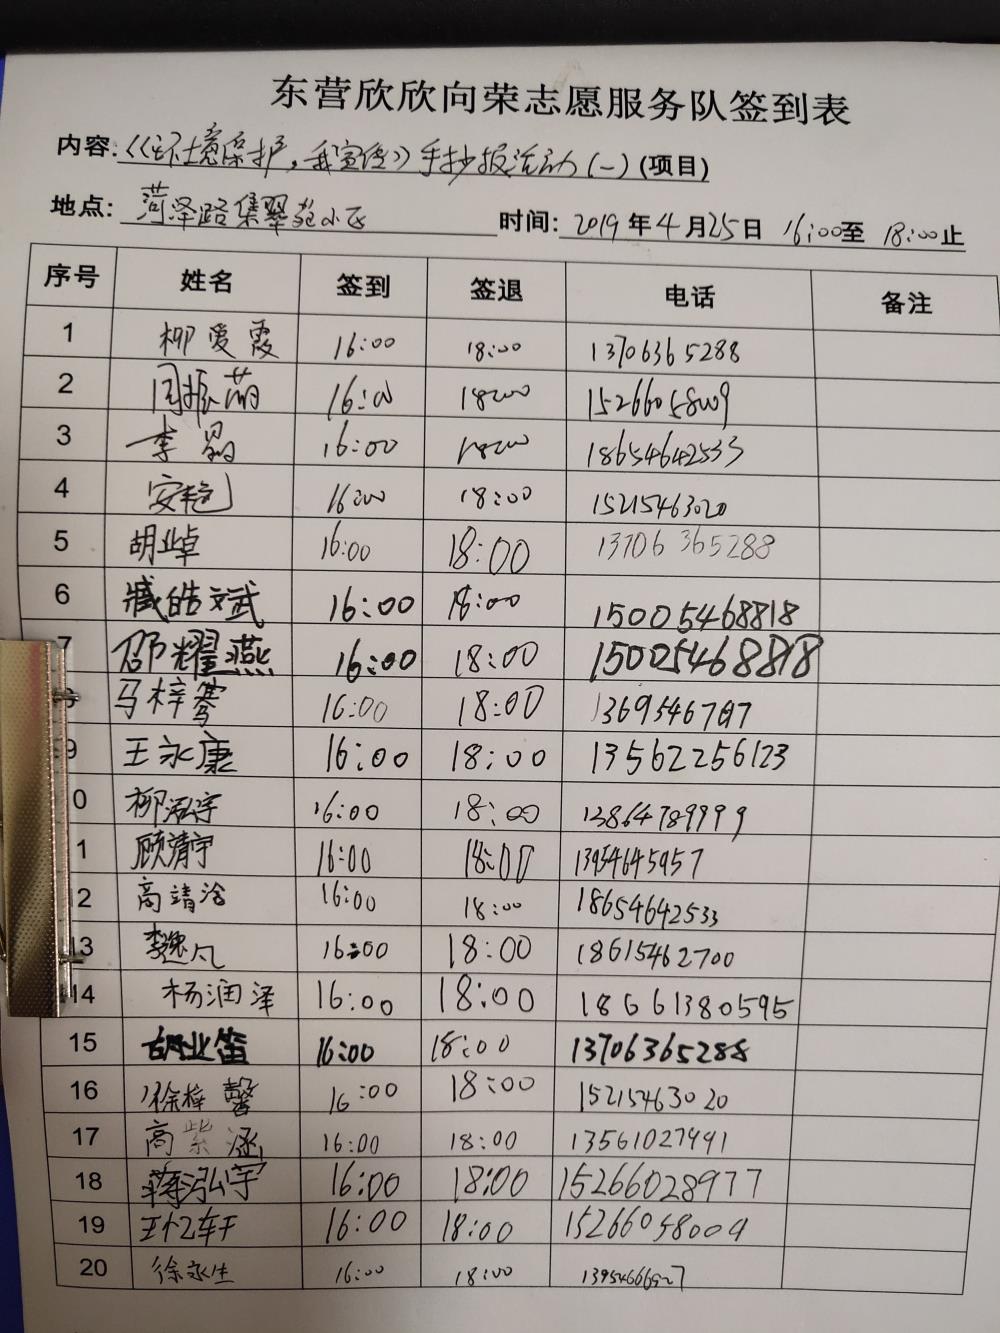 东营欣欣向荣志愿服务队签到表
内容:《环境保护,我宣传》手抄报活动(一)(项目)
地点: 菏泽路集翠苑小区 时间: 2019年4月25日 16:00至 18:00止
序号 姓名 签到 签退 电话 备注
1 柳爱霞 16:00 18:00 13706365288
2 周振萌 16:00 18:00 15266058009
3 李 16:00 18:00 18654642533
4 安艳 16:00 18:00 15215463020
5 胡业卓 16:00 18:00 13706365288
6 臧皓文斌 16:00 18:00 15005468818
7 邵耀燕 16:00 18:00 15005468818
马梓骞 16:00 18:00 1369546
9 王永康 16:00 18:00 13562256123
0 柳泓宇 16:00 18:00 13864789999
1 顾靖宇 16:00 18:00 13954645957
2 高靖涵 16:00 18:00 18654642533
13 李逸凡 16:00 18:00 18615462700
14 杨润泽 16:00 18:00 18661380595
15 胡业笛 16:00 18:00 13706365288
16 徐梓馨 16:00 18:00 15215463020
17 高紫涵 16:00 18:00 13561027991
18 蒋泓宇 16:00 18:00 15266028977
19 王忆轩 16:00 18:00 15266058009
20 徐永生 16:00 18:00